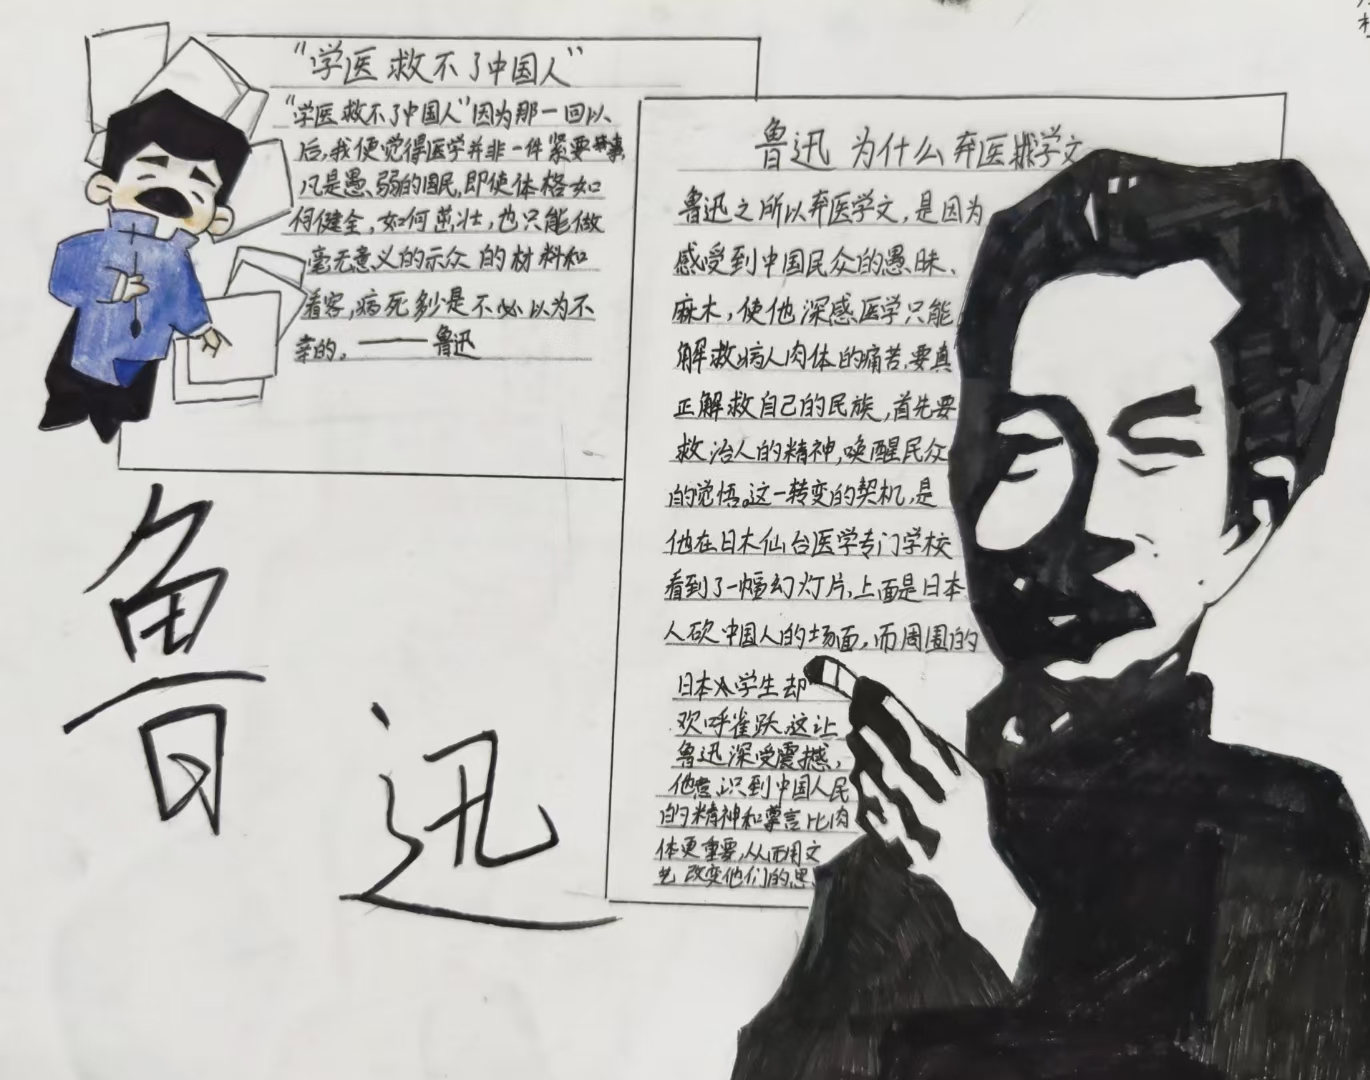 “学医救不了中国人”
“学医救不了中国人”因为那一回以
后,我便觉得医学并非一件紧要事
凡是愚、弱的国民,即使体格如
何健全,如何茁壮,也只能做
毫无意义的示众的材料和
看客,病死多少是不必以为不
幸的。——鲁迅
鲁迅为什么弃医学文
鲁迅之所以弃医学文,是因为
感受到中国民众的愚昧、
麻木,使他深感医学只能
解救病人肉体的痛苦,要真
正解救自己的民族,首先要
救治人的精神,唤醒民众
的觉悟。这一转变的契机,是
他在日本仙台医学专门学校
看到了一幅幻灯片,上面是日本
人砍中国人的场面,而周围的
日本学生却
欢呼雀跃。这让
鲁迅深受震撼,
他意识到中国人民
的精神和 比肉
体更重要,从而用文
艺改变他们的思
鲁
迅